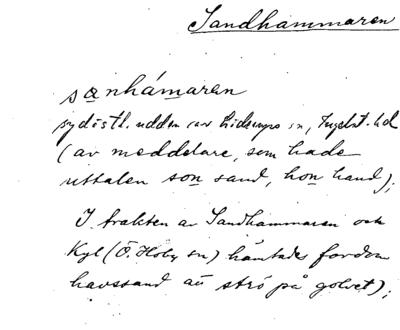 Sandhammaren
sanhámaren
sydöstl. udden av
(av meddelare, som hade
uttalen son sand, hon hand);
I trakten av Sandhammaren och
Kyl (Ö. Hoby sn) hämtades fordom
havssand att strö på golvet);